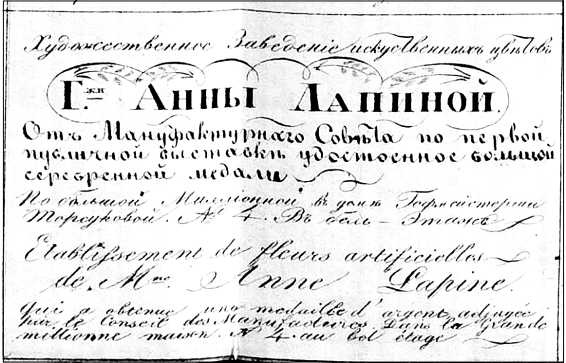 Художественное Заведеніе искуственныхъ цвѣтовъ
Г.жи Анны Лапиной.
Отъ Мануфактурнаго Совѣта по первой
публичной выставкѣ удостоенное большой
серебренной медали
По большой Милліонной въ домѣ Гофмейстерши
Торсуковой № 4. Въ бель-Этажѣ
Etablissement de fleurs artificielles
de Mme. Anne Lapine.
Qui a obtenue une medaille d'argent adjugée
par le Conseil des Manufactures. Dans la Grande
millionne maison № 4 au bel étage